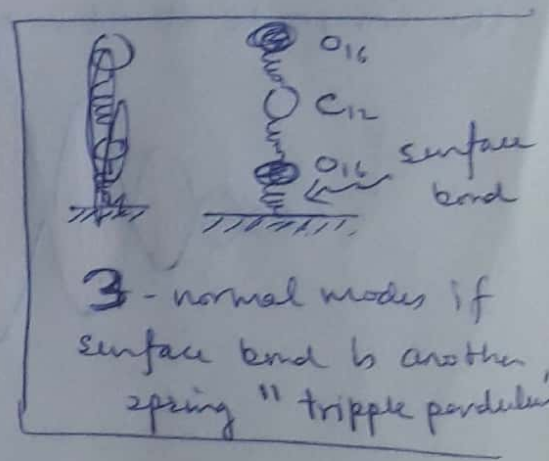 O16
C12
O16
surface
bond
3 - normal modes if
surface bond is another
spring " tripple pendulum"